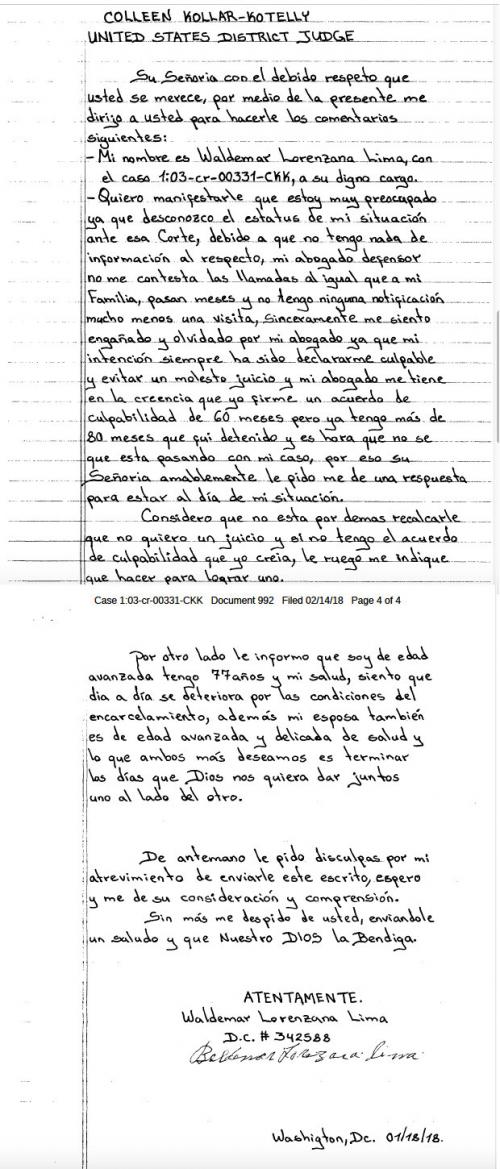 COLLEEN KOLLAR-KOTELLY
UNITED STATES DISTRICT JUDGE
Su Señoria con el debido respeto que
usted se merece, por medio de la presente me
dirijo a usted para hacerle los comentarios
siguientes:
- Mi nombre es Waldemar Lorenzana Lima, con
el caso 1:03-cr-00331-CKK, a su digno cargo.
- Quiero manifestarle que estoy muy preocupado
ya que desconozco el estatus de mi situación
ante esa Corte, debido a que no tengo nada de
información al respecto, mi abogado defensor
no me contesta las llamadas al igual que a mi
Familia, pasan meses y no tengo ninguna notificación
mucho menos una visita, Sinceramente me siento
engañado y olvidado por mi abogado ya que mi
intención siempre ha sido declararme culpable
y evitar un molesto juicio y mi abogado me tiene
en la creencia que yo firme un acuerdo de
culpabilidad de 60 meses pero ya tengo más de
80 meses que fui detenido y es hora que no se
que esta pasando con mi caso, por eso su
Señoria amablemente le pido me de una respuesta
para estar al día de mi situación.
Considero que no esta por demas recalcarle
que no quiero un juicio y si no tengo el acuerdo
de culpabilidad que yo creia, le ruego me indique
que hacer para lograr uno.
Case 1:03-cr-00331-CKK Document 992 Filed 02/14/18 Page 4 of 4
Por otro lado le informo que soy de edad
avanzada tengo 77 años y mi salud, siento que
dia a día se deteriora por las condiciones del
encarcelamiento, además mi esposa también
es de edad avanzada y delicada de salud y
lo que ambos más deseamos es terminar
los días que Dios nos quiera dar juntos
uno al lado del otro.
De antemano le pido disculpas por mi
atrevimiento de enviarle este escrito, espero
y me de su consideración y comprensión.
Sin más me despido de usted, enviandole
un saludo y que Nuestro DIOS la Bendiga.
ATENTAMENTE.
Waldemar Lorenzana Lima
D.C. # 342588
Lorezana lima
Washigton, Dc. 01/18/18.